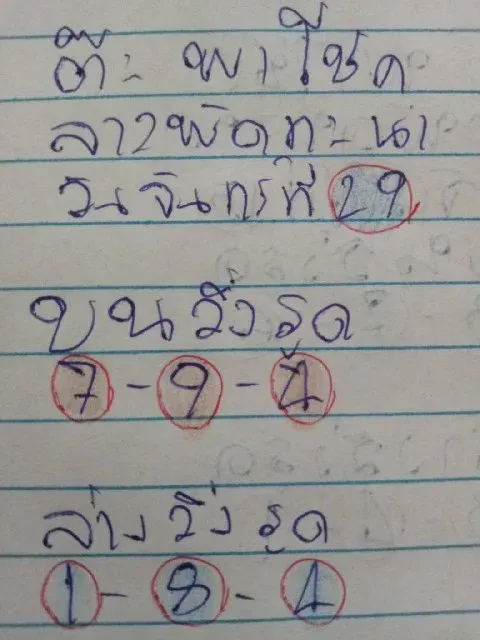 ต๊ะ พาโชค
ลาวพัดทะนา
วันจันทร์ที่ 29
บนวิ่งรูด
7-9-4
ล่างวิ่งรูด
1-8-4